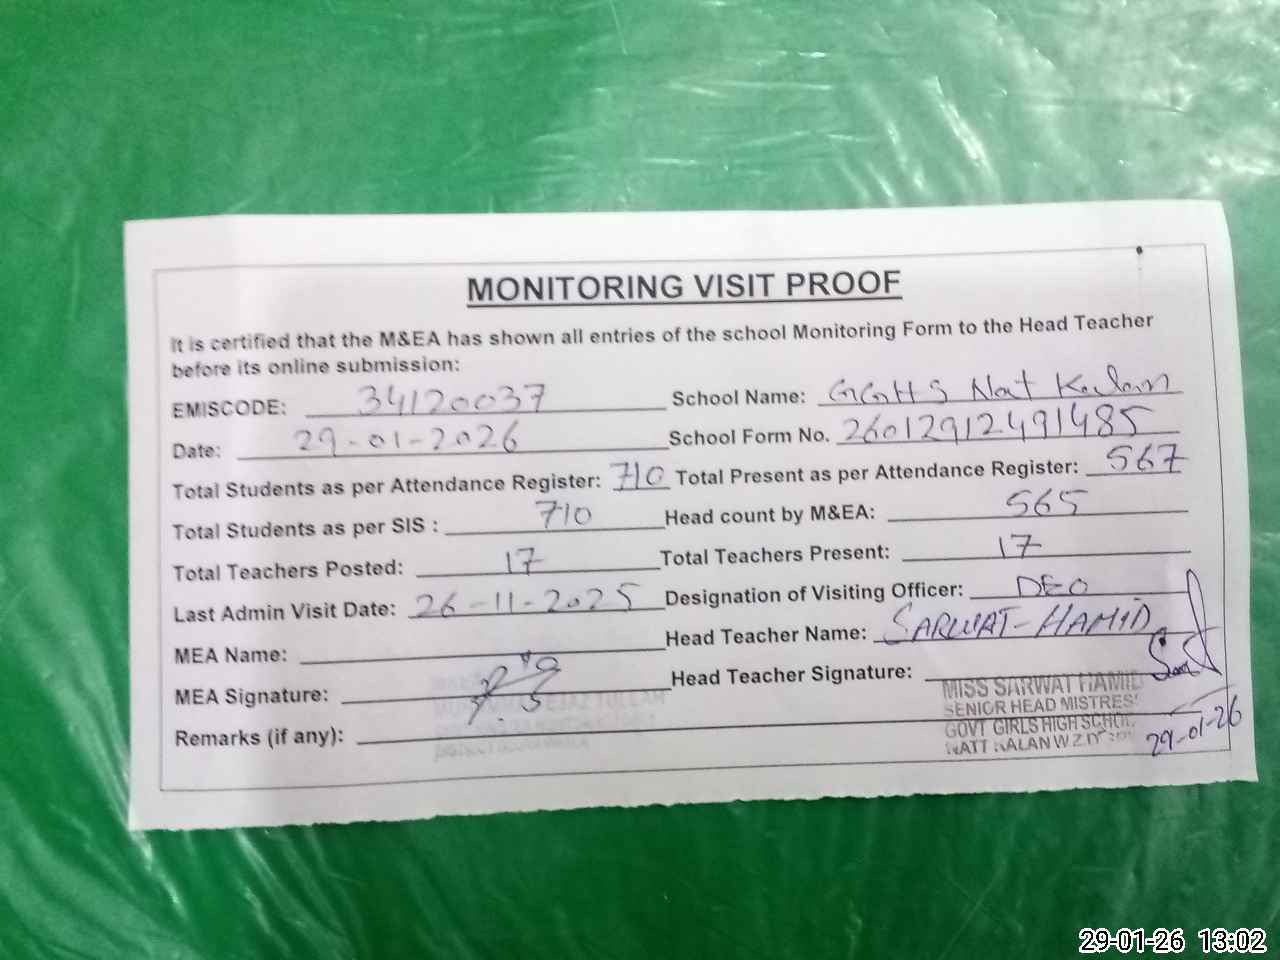 MONITORING VISIT PROOF
It is certified that the M&EA has shown all entries of the school Monitoring Form to the Head Teacher
before its online submission:
EMISCODE: 34120037 School Name: GGHS Nat Kalan
Date: 29-01-2026 School Form No. 26012912491485
Total Students as per Attendance Register: 710 Total Present as per Attendance Register: 567
Total Students as per SIS : 710 Head count by M&EA: 565
Total Teachers Posted: 17 Total Teachers Present: 17
Last Admin Visit Date: 26-11-2025 Designation of Visiting Officer: DEO
MEA Name: Head Teacher Name: SARWAT-HAMID
MEA Signature: Head Teacher Signature:
MISS SARWAT HAMID
SENIOR HEAD MISTRESS
GOVT GIRLS HIGH SCHOOL
NATT KALAN
29-01-26
Remarks (if any):
29-01-26 13:02